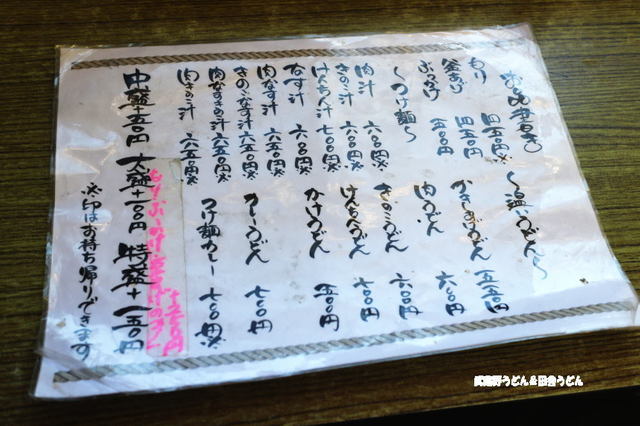 お品書き
もり 四五〇円※
釜あげ 四五〇円
ぶっかけ 五〇〇円
〜つけ麺〜
肉汁 六〇〇円※
きのこ汁 六〇〇円※
けんちん汁 七〇〇円※
なす汁 六〇〇円※
肉なす汁 六五〇円※
きのこなす汁 六五〇円※
肉なすきのこ汁 七五〇円※
肉きのこ汁 六五〇円※
〜温いうどん〜
かきあげうどん 五五〇円
肉うどん 六〇〇円
きのこうどん 六〇〇円
けんちんうどん 七〇〇円
かけうどん 五〇〇円
カレーうどん 七〇〇円
つけ麺カレー 七〇〇円※
中盛+五〇円 大盛+一〇〇円 特盛+一五〇円
※印はお持ち帰りできます
武蔵野うどん&田舎うどん